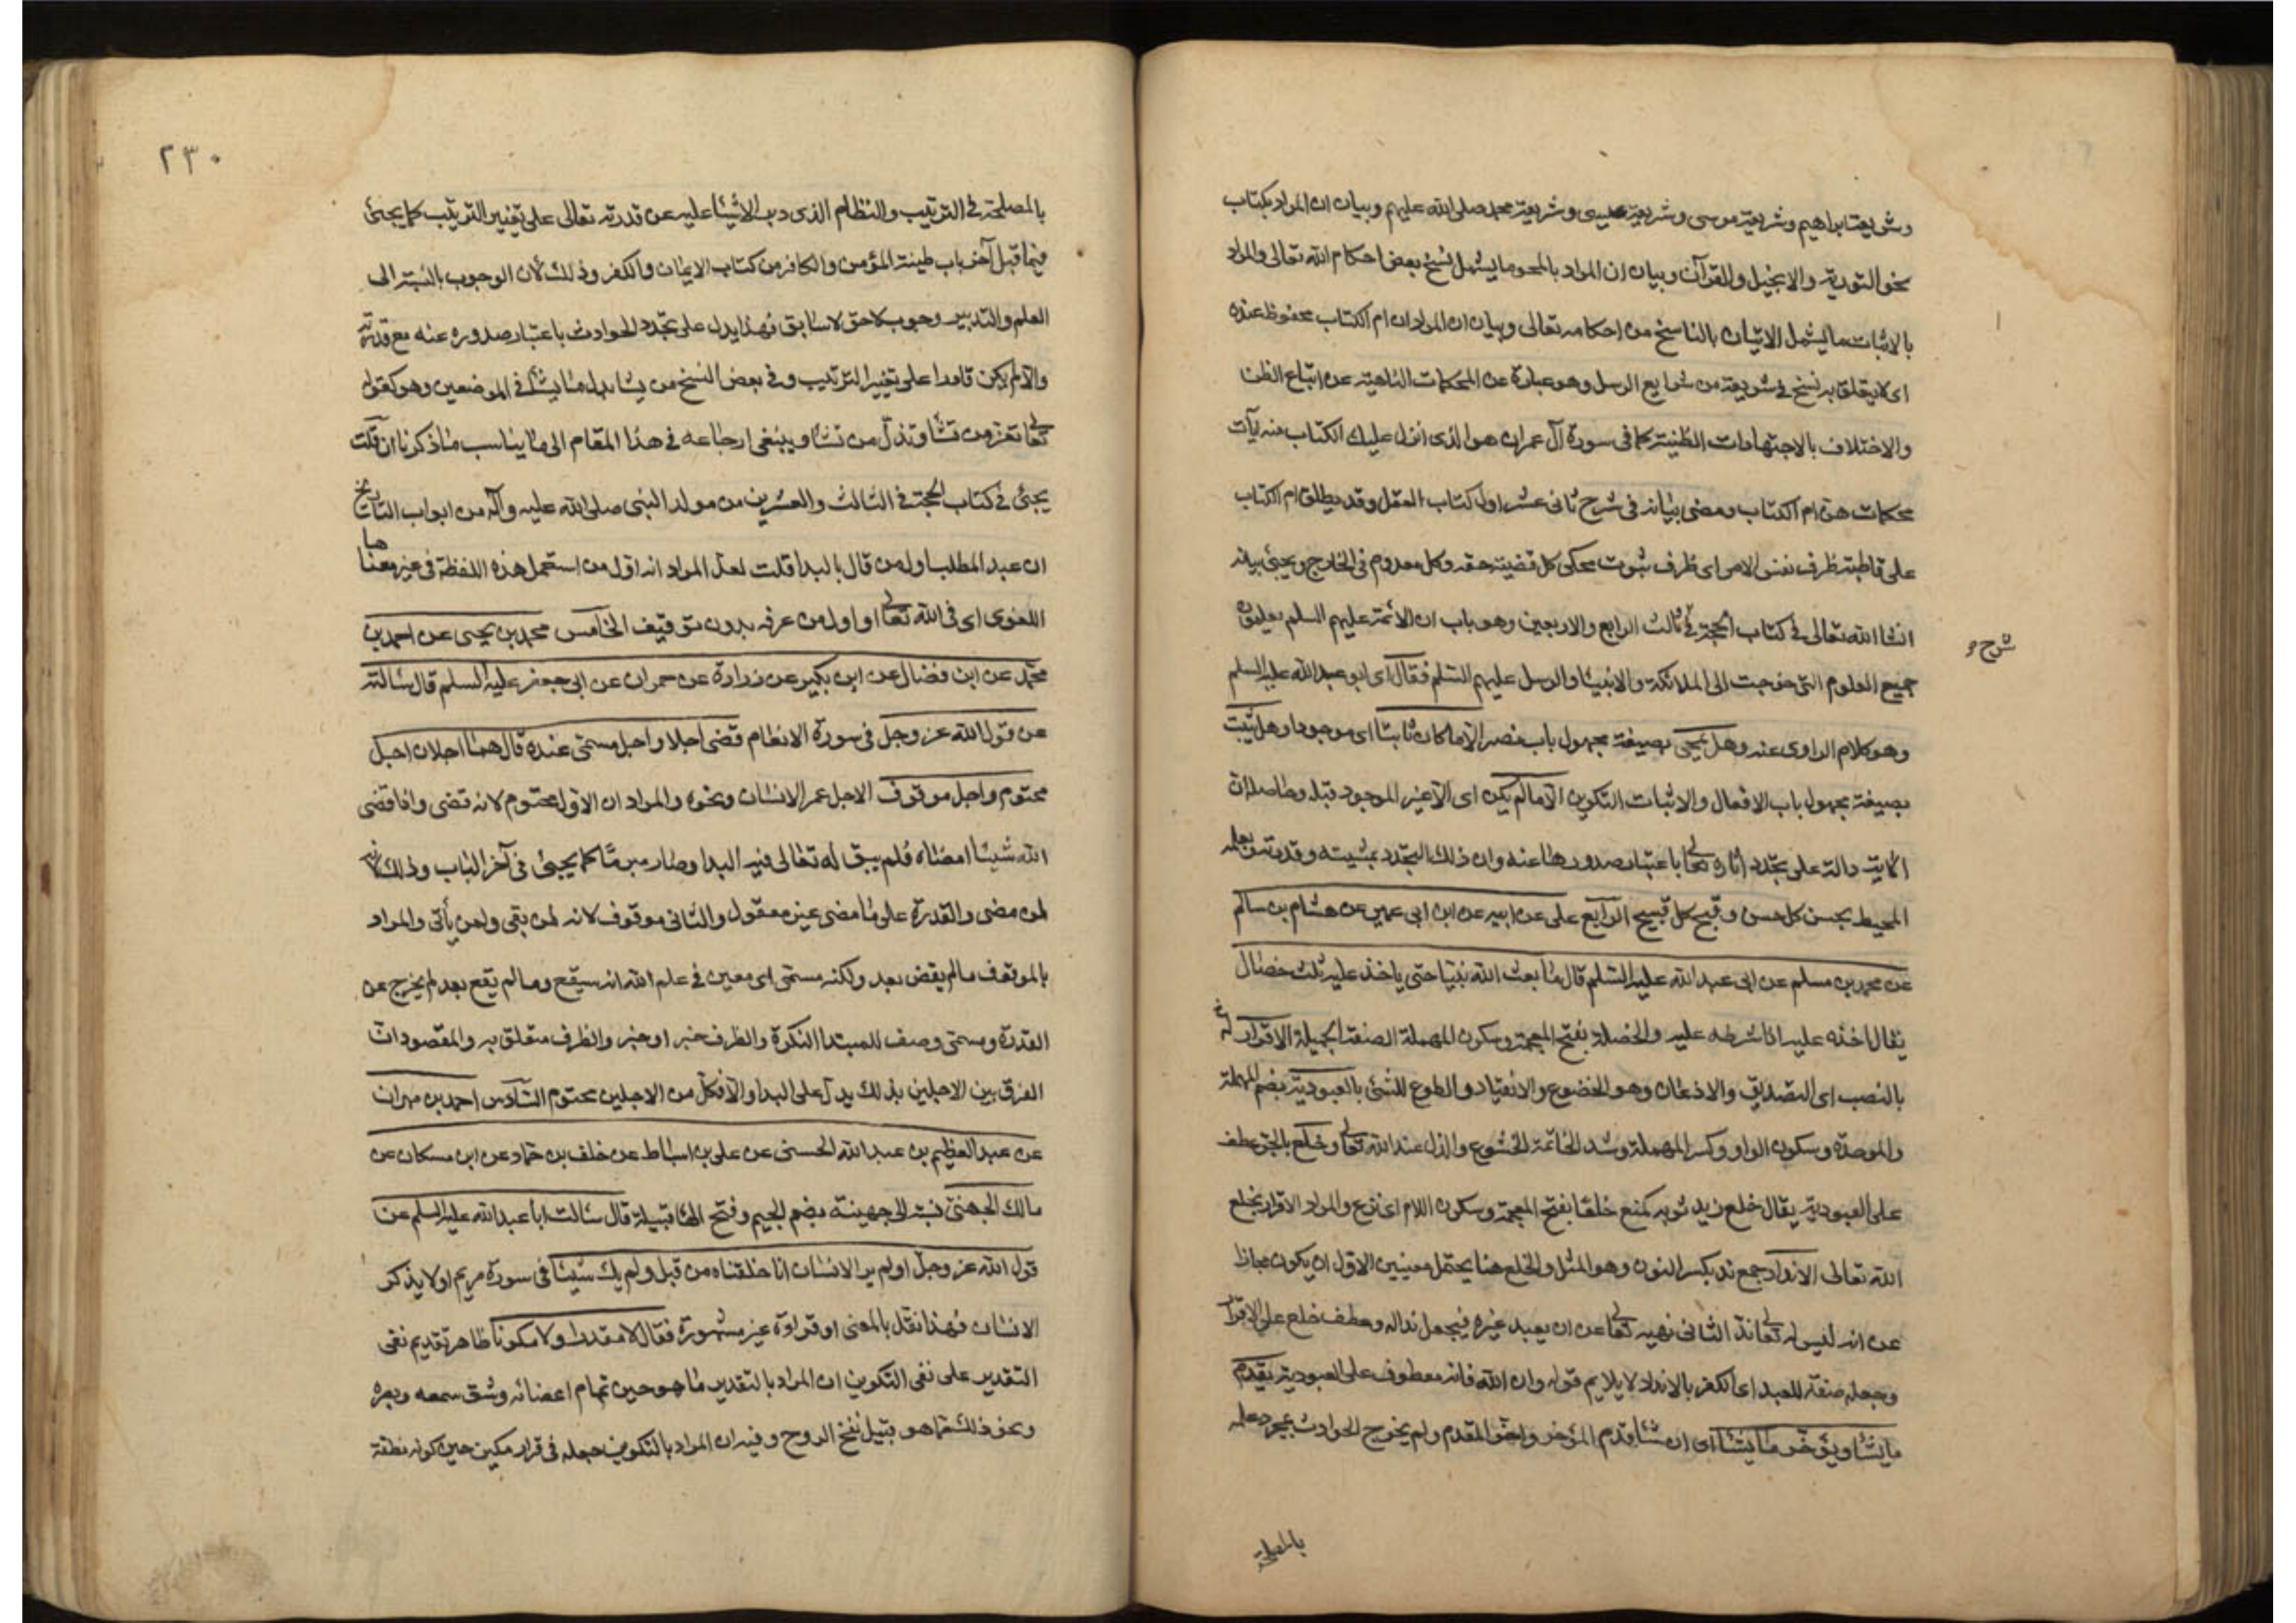 وشريعة ابراهيم وشريعة موسى وشريعة عيسى وشريعة محمد صلى الله عليهم وبيان ان المراد بكتاب
نحو التورية والانجيل والقرآن وبيان ان المراد بالمحو ما يشمل نسخ بعض احكام الله تعالى والمراد
بالاثبات ما يشمل الاتيان بالناسخ من احكامه تعالى وبيان ان المراد ان ام الكتاب محفوظ عنده
اى لا يتعلق به نسخ فى شريعة من شرايع الرسل وهو عبارة عن المحكمات الناهية عن اتباع الظن
والاختلاف بالاجتهادات الظنية كما فى سورة آل عمران هو الذى انزل عليك الكتاب منه آيات
محكمات هن ام الكتاب ومضى بيانه فى شرح ثانى عشر اول كتاب العقل وقد يطلق ام الكتاب
على قاطبة ظرف نفس الامر اى ظرف ثبوت محكى كل قضية حقة وكل معدوم فى الخارج ويجئ بيانه
انشا الله تعالى فى كتاب الحجة فى ثالث الرابع والاربعين وهو باب ان الائمة عليهم السلم يعلمون
شرح
جميع العلوم التى خرجت الى الملائكة والانبيا والرسل عليهم السلم فقال اى ابو عبد الله عليه السلم
وهو كلام الراوى عنه وهل يمحى بصيغة مجهول باب نصر الا ما كان ثابتا اى موجودا وهل يثبت
بصيغة مجهول باب الافعال والاثبات التكوين الا ما لم يكن اى الا غير الموجود قبله وحاصله ان
الاية دالة على تجدد آثاره تعالى باعتبار صدورها عنه وان ذلك التجدد بمشيته وقدرته وبعلمه
المحيط بحسن كل حسن وقبح كل قبيح الرابع على عن ابيه عن ابن ابى عمير عن هشام بن سالم
عن محمد بن مسلم عن ابى عبد الله عليه السلم قال ما بعث الله نبيا حتى ياخذ عليه ثلث خصال
يقال اخذه عليه اذا شرطه عليه والخصلة بفتح المعجمة وسكون المهملة الصفة الجميلة الاقرار له
بالنصب اى التصديق والاذعان وهو الخضوع والانقياد والطوع للشئ بالعبودية بضم المهملة
والموحدة وسكون الواو وكسر المهملة وشد الخاتمة الخشوع والذل عند الله تعالى وخلع بالجر عطف
على العبودية يقال خلع زيد ثوبه كمنع خلعا بفتح المعجمة وسكون اللام اى نزع والمراد الاقرار بخلع
الله تعالى الانداد جمع ند بكسر النون وهو المثل والخلع هنا يحتمل معنيين الاول ان يكون مجازا
عن انه ليس له تعالى ند الثانى نهيه تعالى عن ان يعبد غيره فيجعل ندا له وعطف خلع على الاقرار
وجعله صفة للعبد اى الكفر بالانداد لا يلايم قوله وان الله فانه معطوف على العبودية يقدم
ما يشا ويؤخر ما يشا اى ان شا قدم المؤخر واخر المقدم ولم يخرج الحوادث بمجرد علمه
بالمصلحة
٢٣٠
بالمصلحة فى الترتيب والنظام الذى دبر الاشيا عليه عن قدرته تعالى على تغيير الترتيب كما يجئ
فيما قبل آخر باب طينة المؤمن والكافر من كتاب الايمان والكفر وذلك لان الوجوب بالنسبة الى
العلم والتدبير وجوب لاحق لا سابق فهذا يدل على تجدد الحوادث باعتبار صدوره عنه مع قدرته
والا لم يكن قادرا على تغيير الترتيب وفى بعض النسخ من يشا بدل ما يشا فى الموضعين وهو كقوله
تعالى تعز من تشا وتذل من تشا وينبغى ارجاعه فى هذا المقام الى ما يناسب ما ذكرنا ان قلت
يجئ فى كتاب الحجة فى الثالث والعشرين من مولد النبى صلى الله عليه وآله من ابواب التاريخ
ان عبد المطلب اول من قال بالبدا قلت لعل المراد انه اول من استعمل هذه اللفظة فى غير معناها
اللغوى اى فى الله تعالى او اول من عرفه بدون توقيف الخامس محمد بن يحيى عن احمد بن
محمد عن ابن فضال عن ابن بكير عن زرارة عن حمران عن ابى جعفر عليه السلم قال سالته
عن قول الله عز وجل فى سورة الانعام قضى اجلا واجل مسمى عنده قال هما اجلان اجل
محتوم واجل موقوف الاجل عمر الانسان ونحوه والمراد ان الاول محتوم لانه قضى واذا قضى
الله شيئا امضاه فلم يبق له تعالى فيه البدا وصار مبرما كما يجئ فى آخر الباب وذلك لانه
لمن مضى والقدرة على ما مضى غير معقول والثانى موقوف لانه لمن بقى ولمن يأتى والمراد
بالموقوف ما لم يقض بعد ولكنه مسمى اى معين فى علم الله انه سيقع وما لم يقع بعد لم يخرج عن
القدرة ومسمى وصف للمبتدا النكرة والظرف خبر او خبر والظرف متعلق به والمقصود ان
الفرق بين الاجلين بذلك يدل على البدا والا فكل من الاجلين محتوم السادس احمد بن مهران
عن عبد العظيم بن عبد الله الحسنى عن على بن اسباط عن خلف بن حماد عن ابن مسكان عن
مالك الجهنى نسبة الى جهينة بضم الجيم وفتح الها قبيلة قال سالت ابا عبد الله عليه السلم عن
قول الله عز وجل اولم ير الانسان انا خلقناه من قبل ولم يك شيئا فى سورة مريم اولا يذكر
الانسان فهذا نقل بالمعنى او قراءة غير مشهورة فقال لا مقدرا ولا مكونا ظاهر تقديم نفى
التقدير على نفى التكوين ان المراد بالتقدير ما هو حين تمام اعضائه وشق سمعه وبصره
ونحو ذلك مما هو قبيل نفخ الروح وفيه ان المراد بالتكوين جعله فى قرار مكين حين كونه نطفة